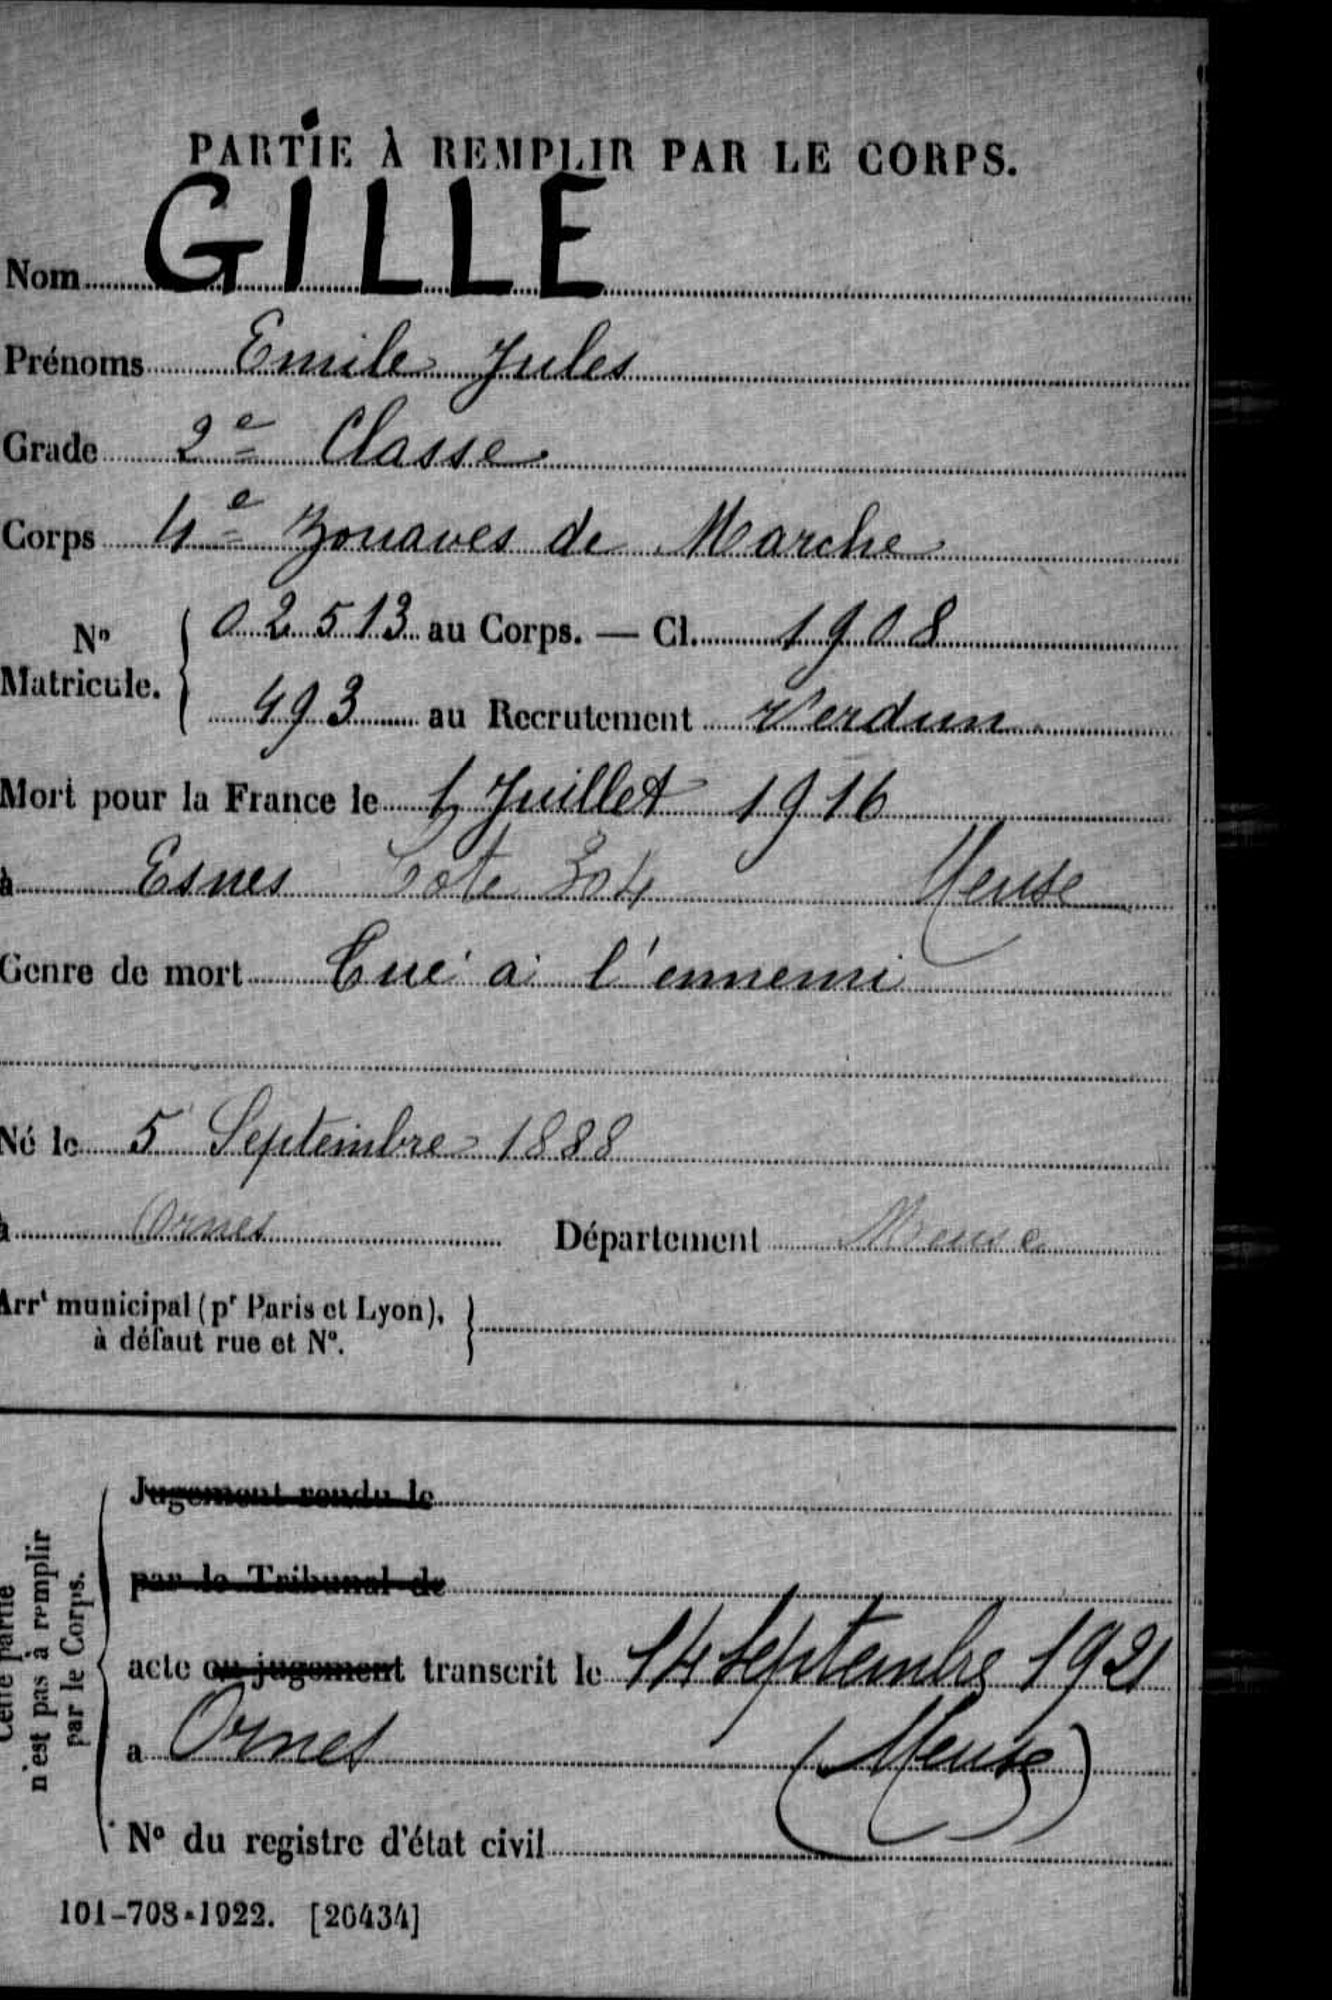 PARTIE À REMPLIR PAR LE CORPS.
Nom GILLE
Prénoms Emile Jules
Grade 2e Classe
Corps 4e Zouaves de Marche
No Matricule. { 02513 au Corps. — Cl. 1908
493 au Recrutement Verdun
Mort pour la France le Juillet 1916
à Esnes Cote 304 Meuse
Genre de mort Tué à l'ennemi
Né le 5 Septembre 1888
à Ornes Département Meuse
Arrt municipal (pr Paris et Lyon), }
à défaut rue et No.
Cette partie
n'est pas à remplir
par le Corps.
Jugement rendu le
par le Tribunal de
acte ou jugement transcrit le 14 Septembre 1921
a Ornes (Meuse)
No du registre d'état civil
101-708-1922. [20434]